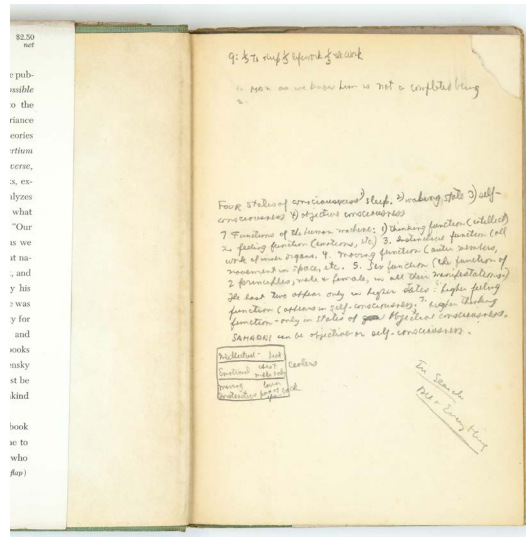 $2.50
net
e pub-
ossible
o the
riance
eories
ertium
verse,
s, ex-
lyzes
what
"Our
as we
at na-
, and
y his
e was
y for
and
books
ensky
st be
kind
book
ne to
who
flap)
9: 1/3 To sleep 1/3 lifework 1/3 work
1. Man as we know him is not a completed being
2.
Four states of consciousness 1) sleep. 2) waking state 3) self-
consciousness 4) objective consciousness
7 Functions of the human machine: 1) thinking function (intellect)
2. feeling function (emotions, etc) 3. Instinctive function (all
work of inner organs. 4. moving function (outer members,
movement in space, etc. 5. Sex function (the function of
2 principles, male & female, in all their manifestations)
The last two appear only in higher states: higher feeling
function (appears in self-consciousness). 2. higher thinking
function - only in states of objective consciousness.
SAMADHI can be objective or self-consciousness.
Intellectual - head
Emotional chest
Centers
Moving lower
Instinctive back
In Search
All & Everything